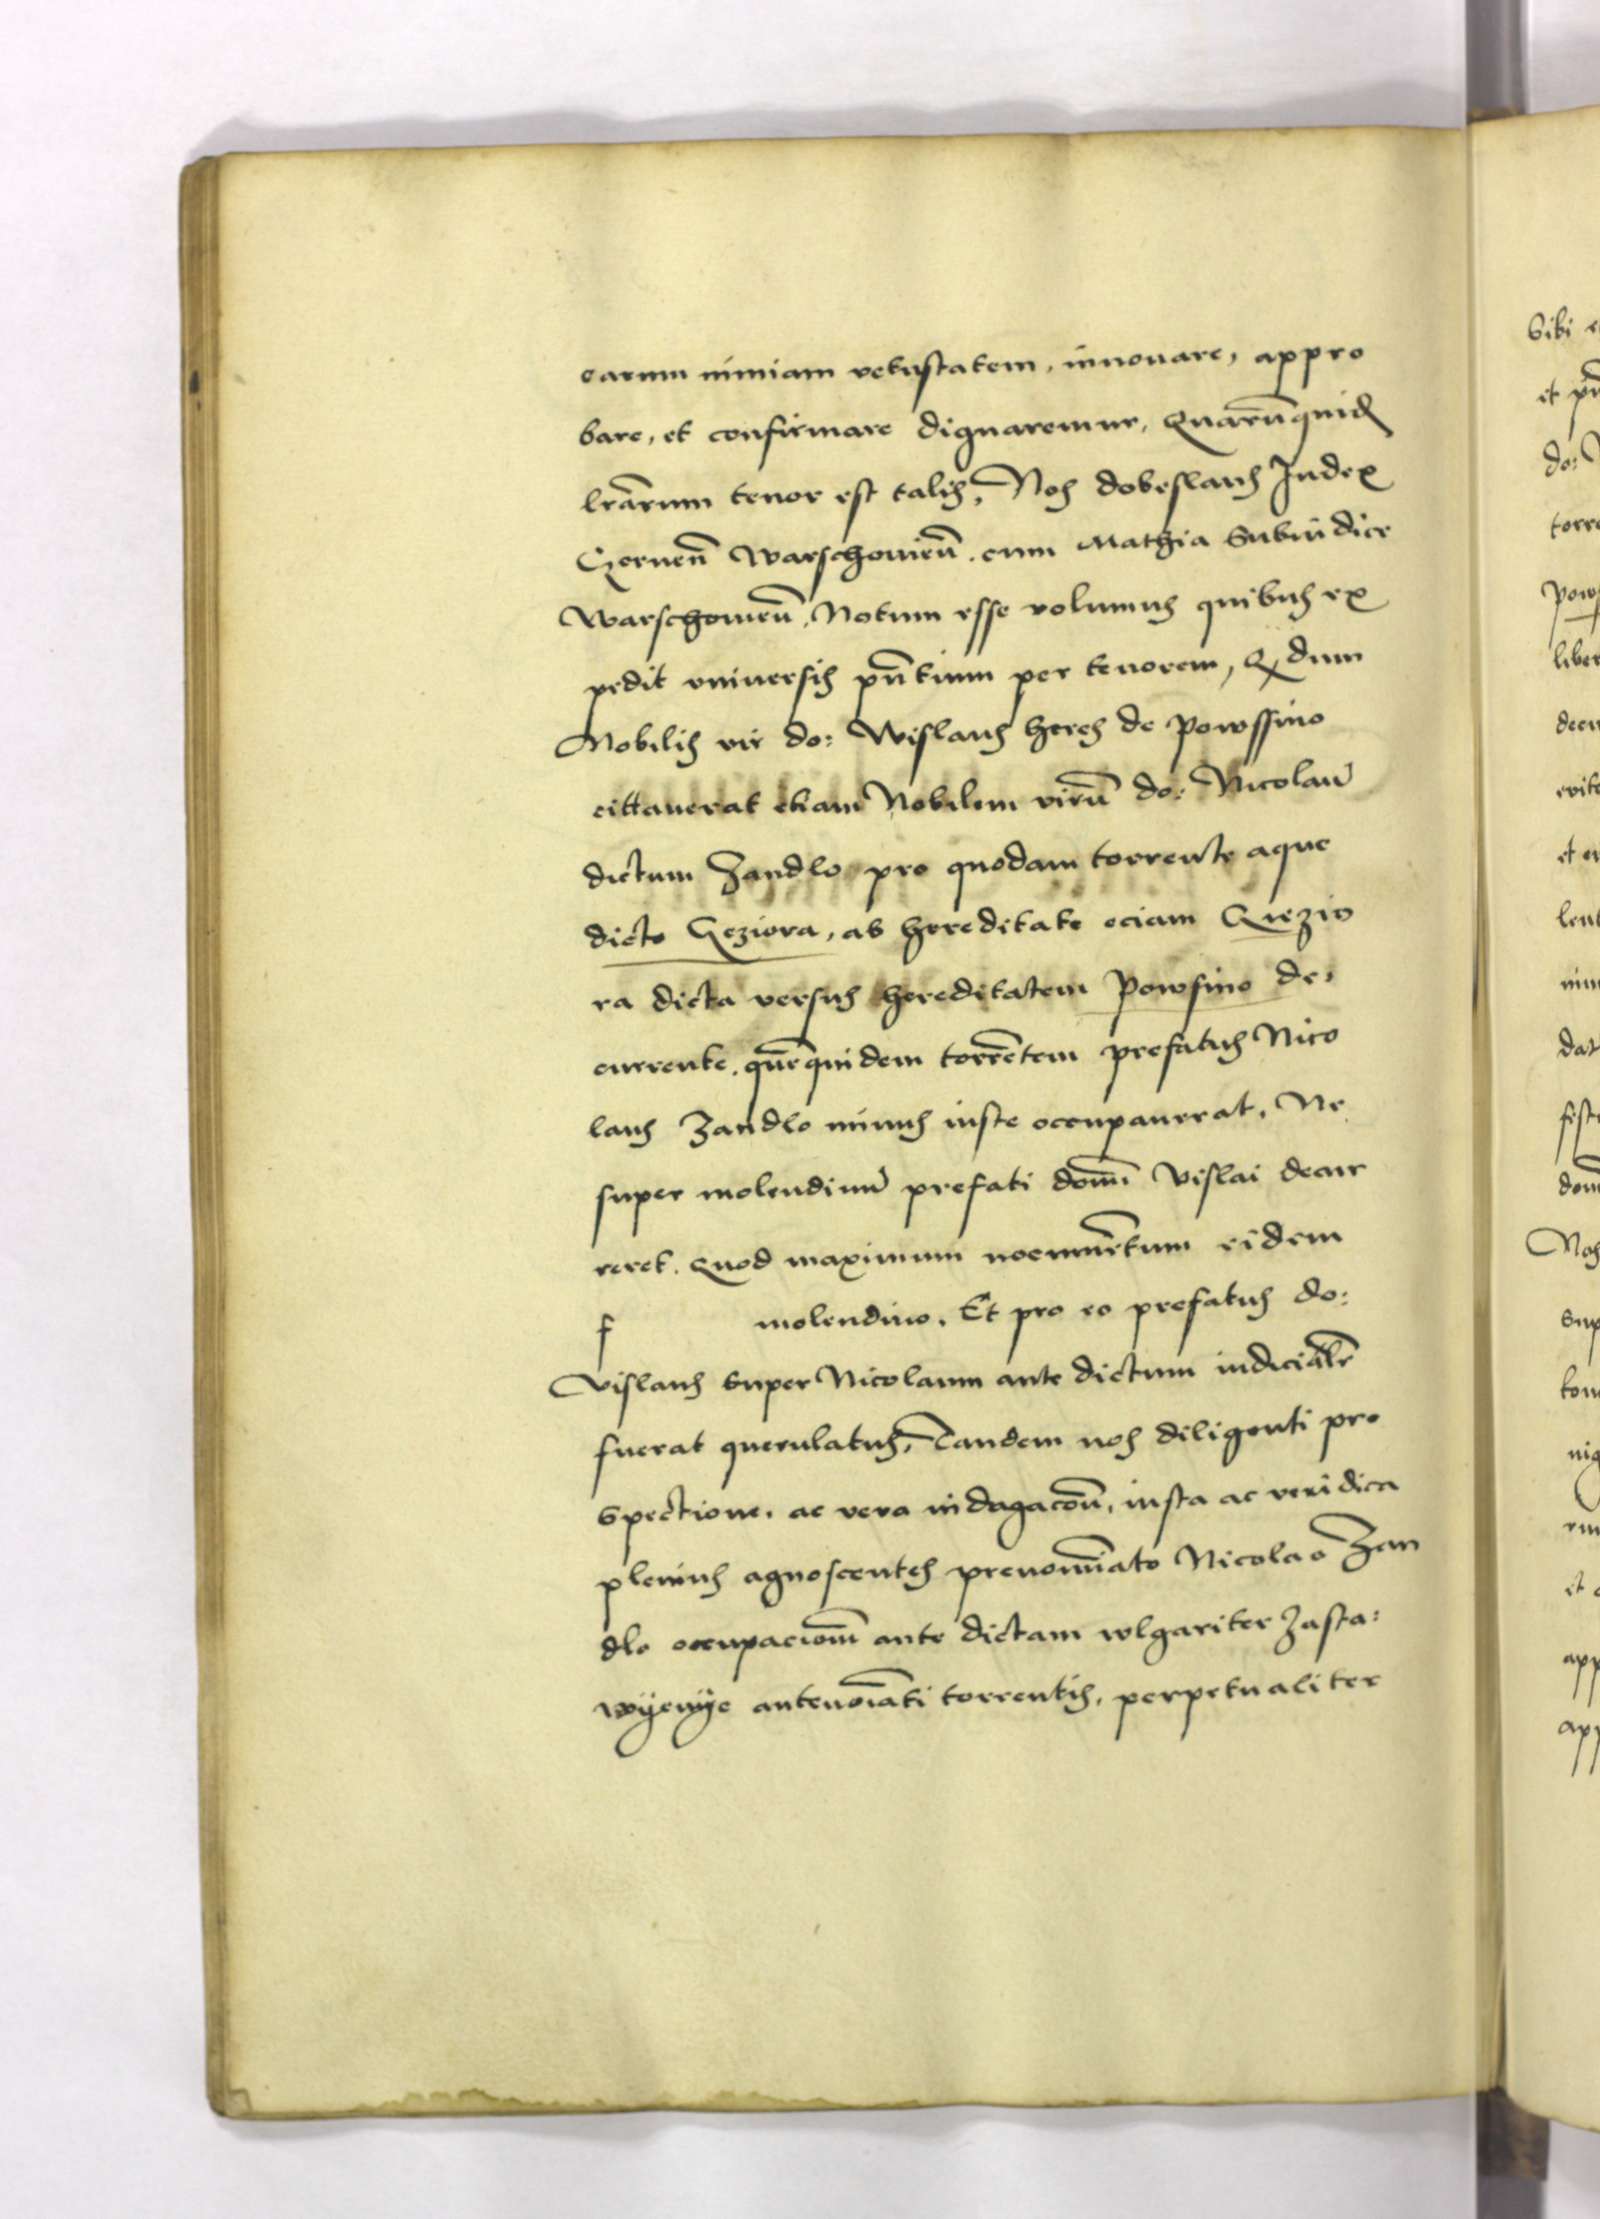 earum nimiam vetustatem, innouare, appro
bare, et confirmare dignaremur, Quarūquid
lrārum tenor est talis, Nos dobeslaus Iudex
Czernen̄ Warschouien̄. cum Mathia Subiudice
Warschouien̄, Notum esse volumus quibus ex
pedit vniuersis pn̄tium per tenorem, Q dum
Nobilis vir do: Wislaus heres de Powssino
cittauerat etiam Nobilem virū do: Nicolaū
dictum Zandlo pro quodam torrente aque
dicto Geziora, ab hereditate eciam Giezio
ra dicta versus hereditatem Powsino de,
currente. quēquidem torrētem prefatus Nico
laus Zandlo minus iuste occupauerat, Ne
super molendinū prefati dom̄i Vislai decur
reret. Quod maximum nocumētum eidem
f molendino. Et pro eo prefatus do:
Vislaus super Nicolaum ante dictum iudicialr̄
fuerat querulatus, Tandem nos diligenti pro
spectione, ac vera indagacōn̄, iusta ac veridica
plenius agnoscentes prenomīato Nicolao Zan
dlo occupaciom̄ ante dictam wlgariter Zasta:
wÿenÿe antenoīati torrentis, perpetualiter
Sibi
et
do:
torre
Pows
liber
et
dat
Nos
sup
et
app
app